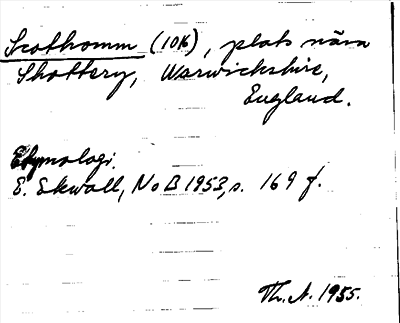 Scothomm (10K), plats nära
Shottery, Warwickshire,
England.
Etymologi.
E. Ekwall, NoB 1953, s. 169 f.
Th. A. 1955.